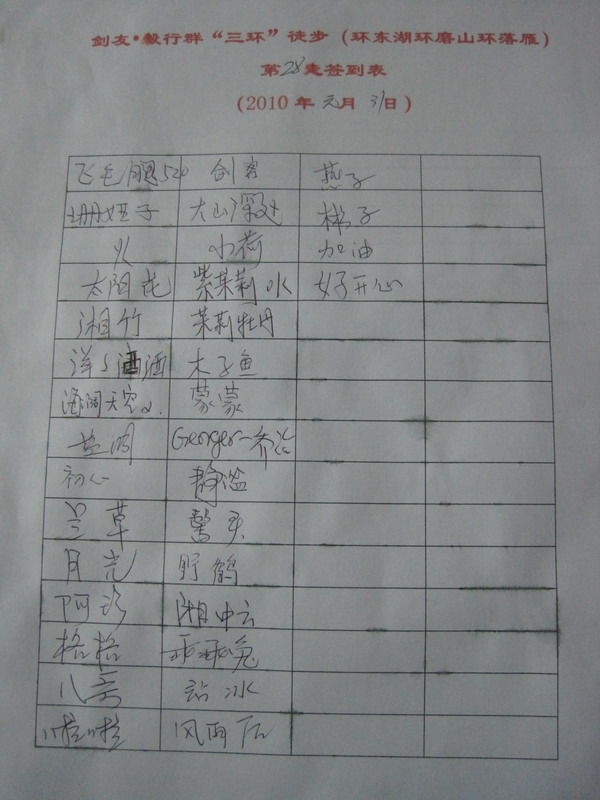 剑友•毅行群“三环”徒步（环东湖环磨山环落雁）
第28走签到表
（2010年元月31日）
飞毛腿520 剑客 燕子
珊妞子 大山深处 梯子
火 小荷 加油
太阳花 紫茉莉 水 好开心
湘竹 茉莉牡丹
洋洋洒洒 木子鱼
海阔天空 蒙蒙
Genger-乔治
初心 静谧
兰草
月光 野鹤
阿珍 湘中云
格格 乖乖兔
八哥 冰
啦啦 风雨后